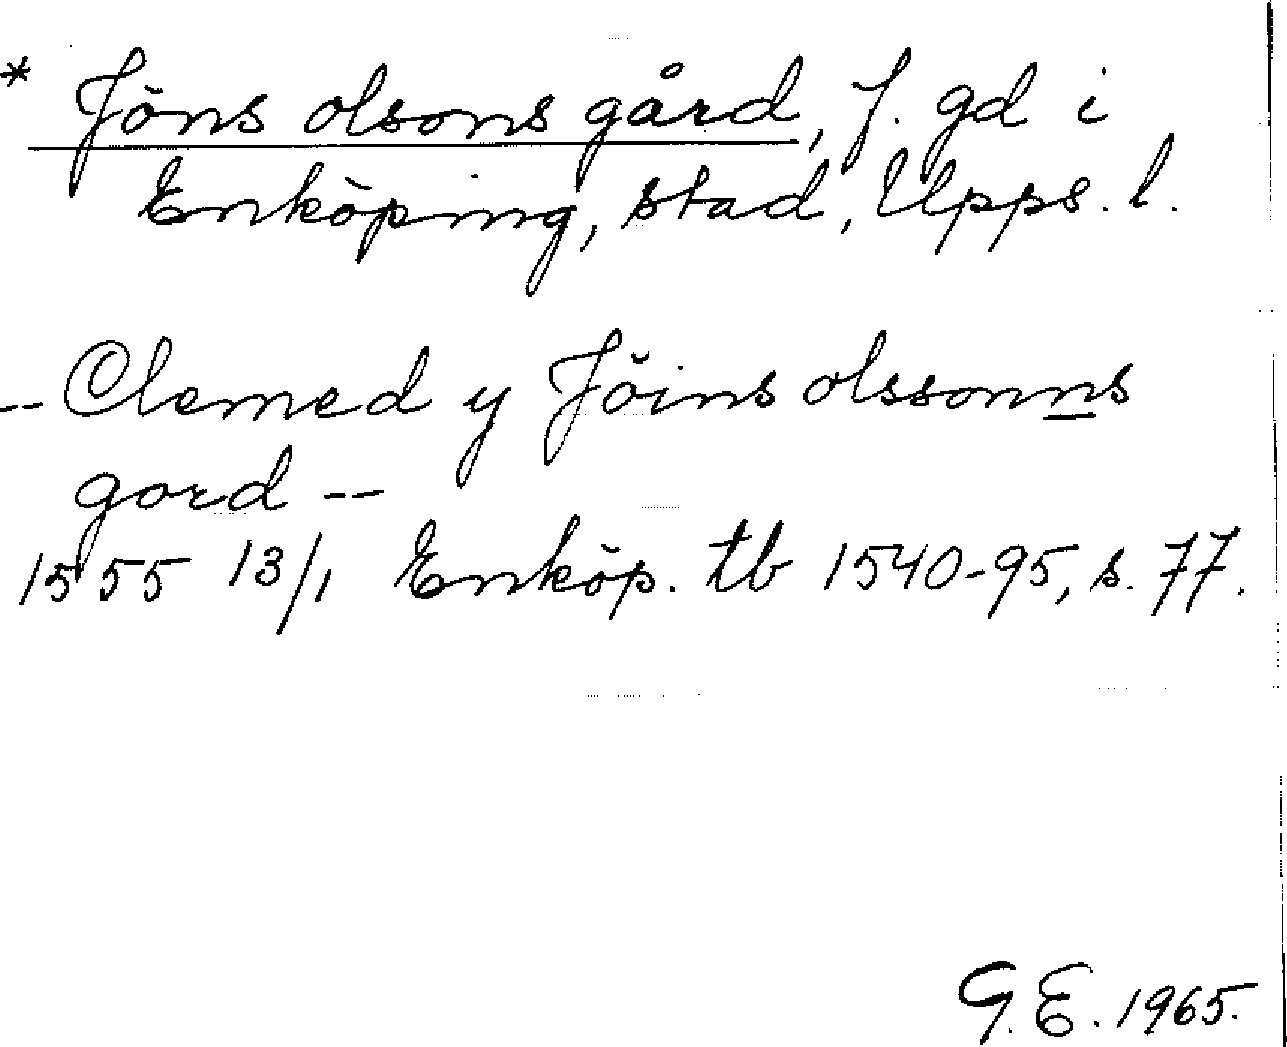 * Jöns olsons gård, f. gd i
Enköping, stad, Upps. l.
-- Clemed y Jöins olssonns
gord --
1555 13/1 Enköp. tb 1540-95, s. 77.
G. E. 1965.